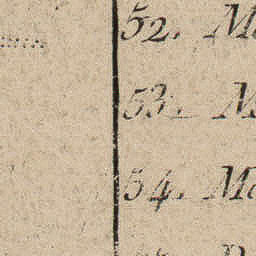 52. M
53. M
54. Ma